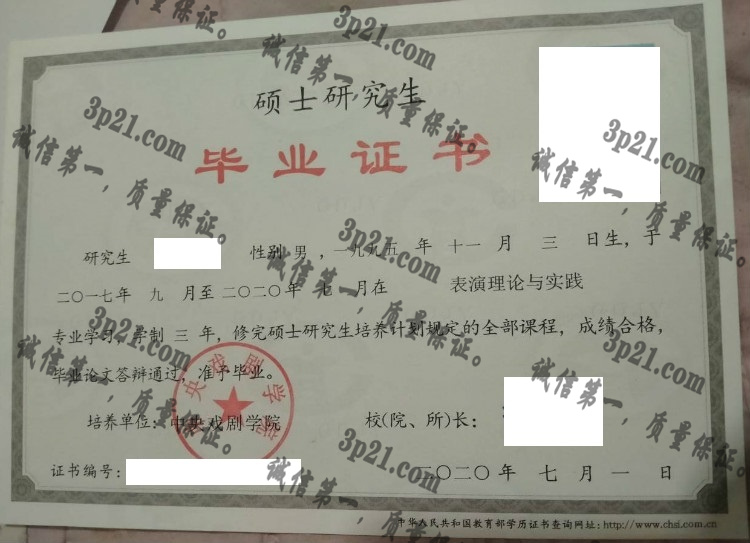 硕士研究生
毕业证书
研究生 性别 男 ，一九九五 年 十一 月 三 日生，于
二〇一七年 九 月至二〇二〇年 七 月在 表演理论与实践
专业学习，学制 三 年，修完硕士研究生培养计划规定的全部课程，成绩合格，
毕业论文答辩通过，准予毕业。
培养单位：中央戏剧学院 校(院、所)长：
证书编号： 二〇二〇 年 七 月 一 日
中华人民共和国教育部学历证书查询网址：http://www.chsi.com.cn
中央戏剧学院
3p21.com
诚信第一，质量保证。
3p21.com
诚信第一，质量保证。
3p21.com
诚信第一，质量保证。
3p21.com
诚信第一，质量保证。
3p21.com
诚信第一，质量保证。
3p21.com
诚信第一，质量保证。
3p21.com
诚信第一，质量保证。